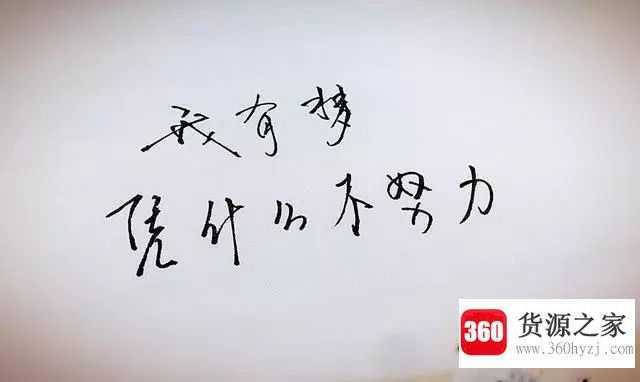 我有梦
凭什么不努力
360 货源之家
www.360hyzj.com